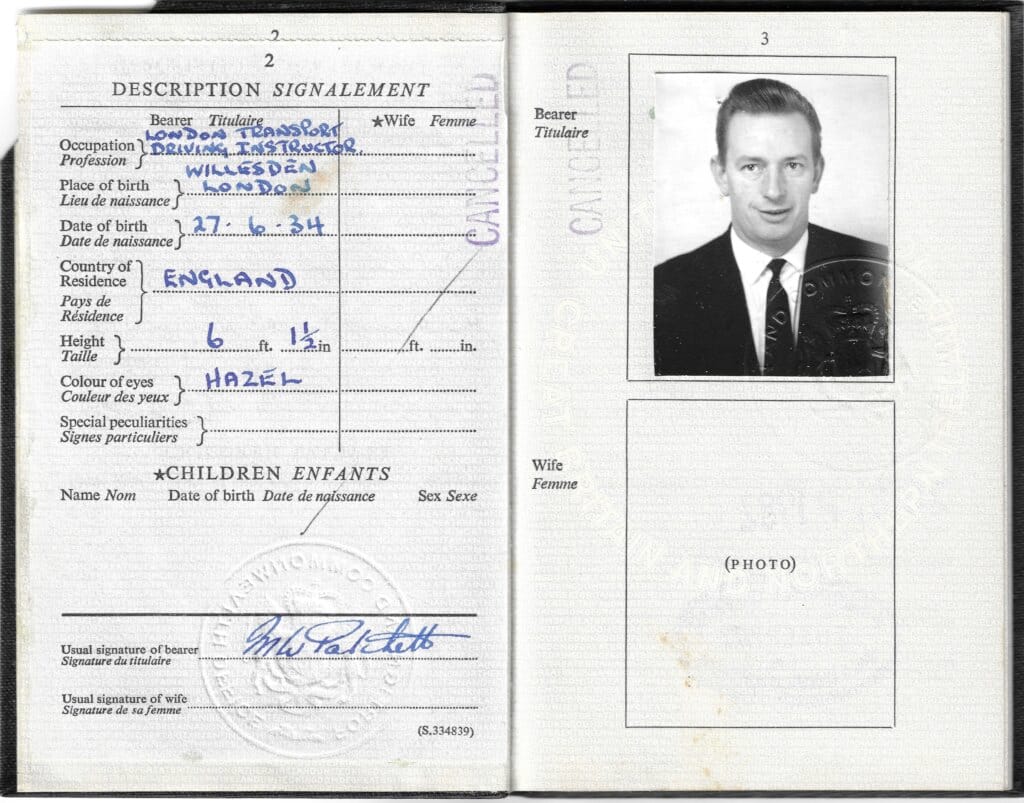 2
2
DESCRIPTION SIGNALEMENT
Bearer Titulaire ★Wife Femme
Occupation LONDON TRANSPORT
Profession DRIVING INSTRUCTOR.
WILLESDEN
Place of birth LONDON
Lieu de naissance
Date of birth 27·6·34
Date de naissance
Country of
Residence ENGLAND
Pays de
Résidence
Height 6 ft. 1½ in ft. in.
Taille
Colour of eyes HAZEL
Couleur des yeux
Special peculiarities
Signes particuliers
★CHILDREN ENFANTS
Name Nom Date of birth Date de naissance Sex Sexe
Usual signature of bearer Patchett
Signature du titulaire
Usual signature of wife
Signature de sa femme
(S.334839)
CANCELLED
3
Bearer
Titulaire
CANCELLED
Wife
Femme
(PHOTO)